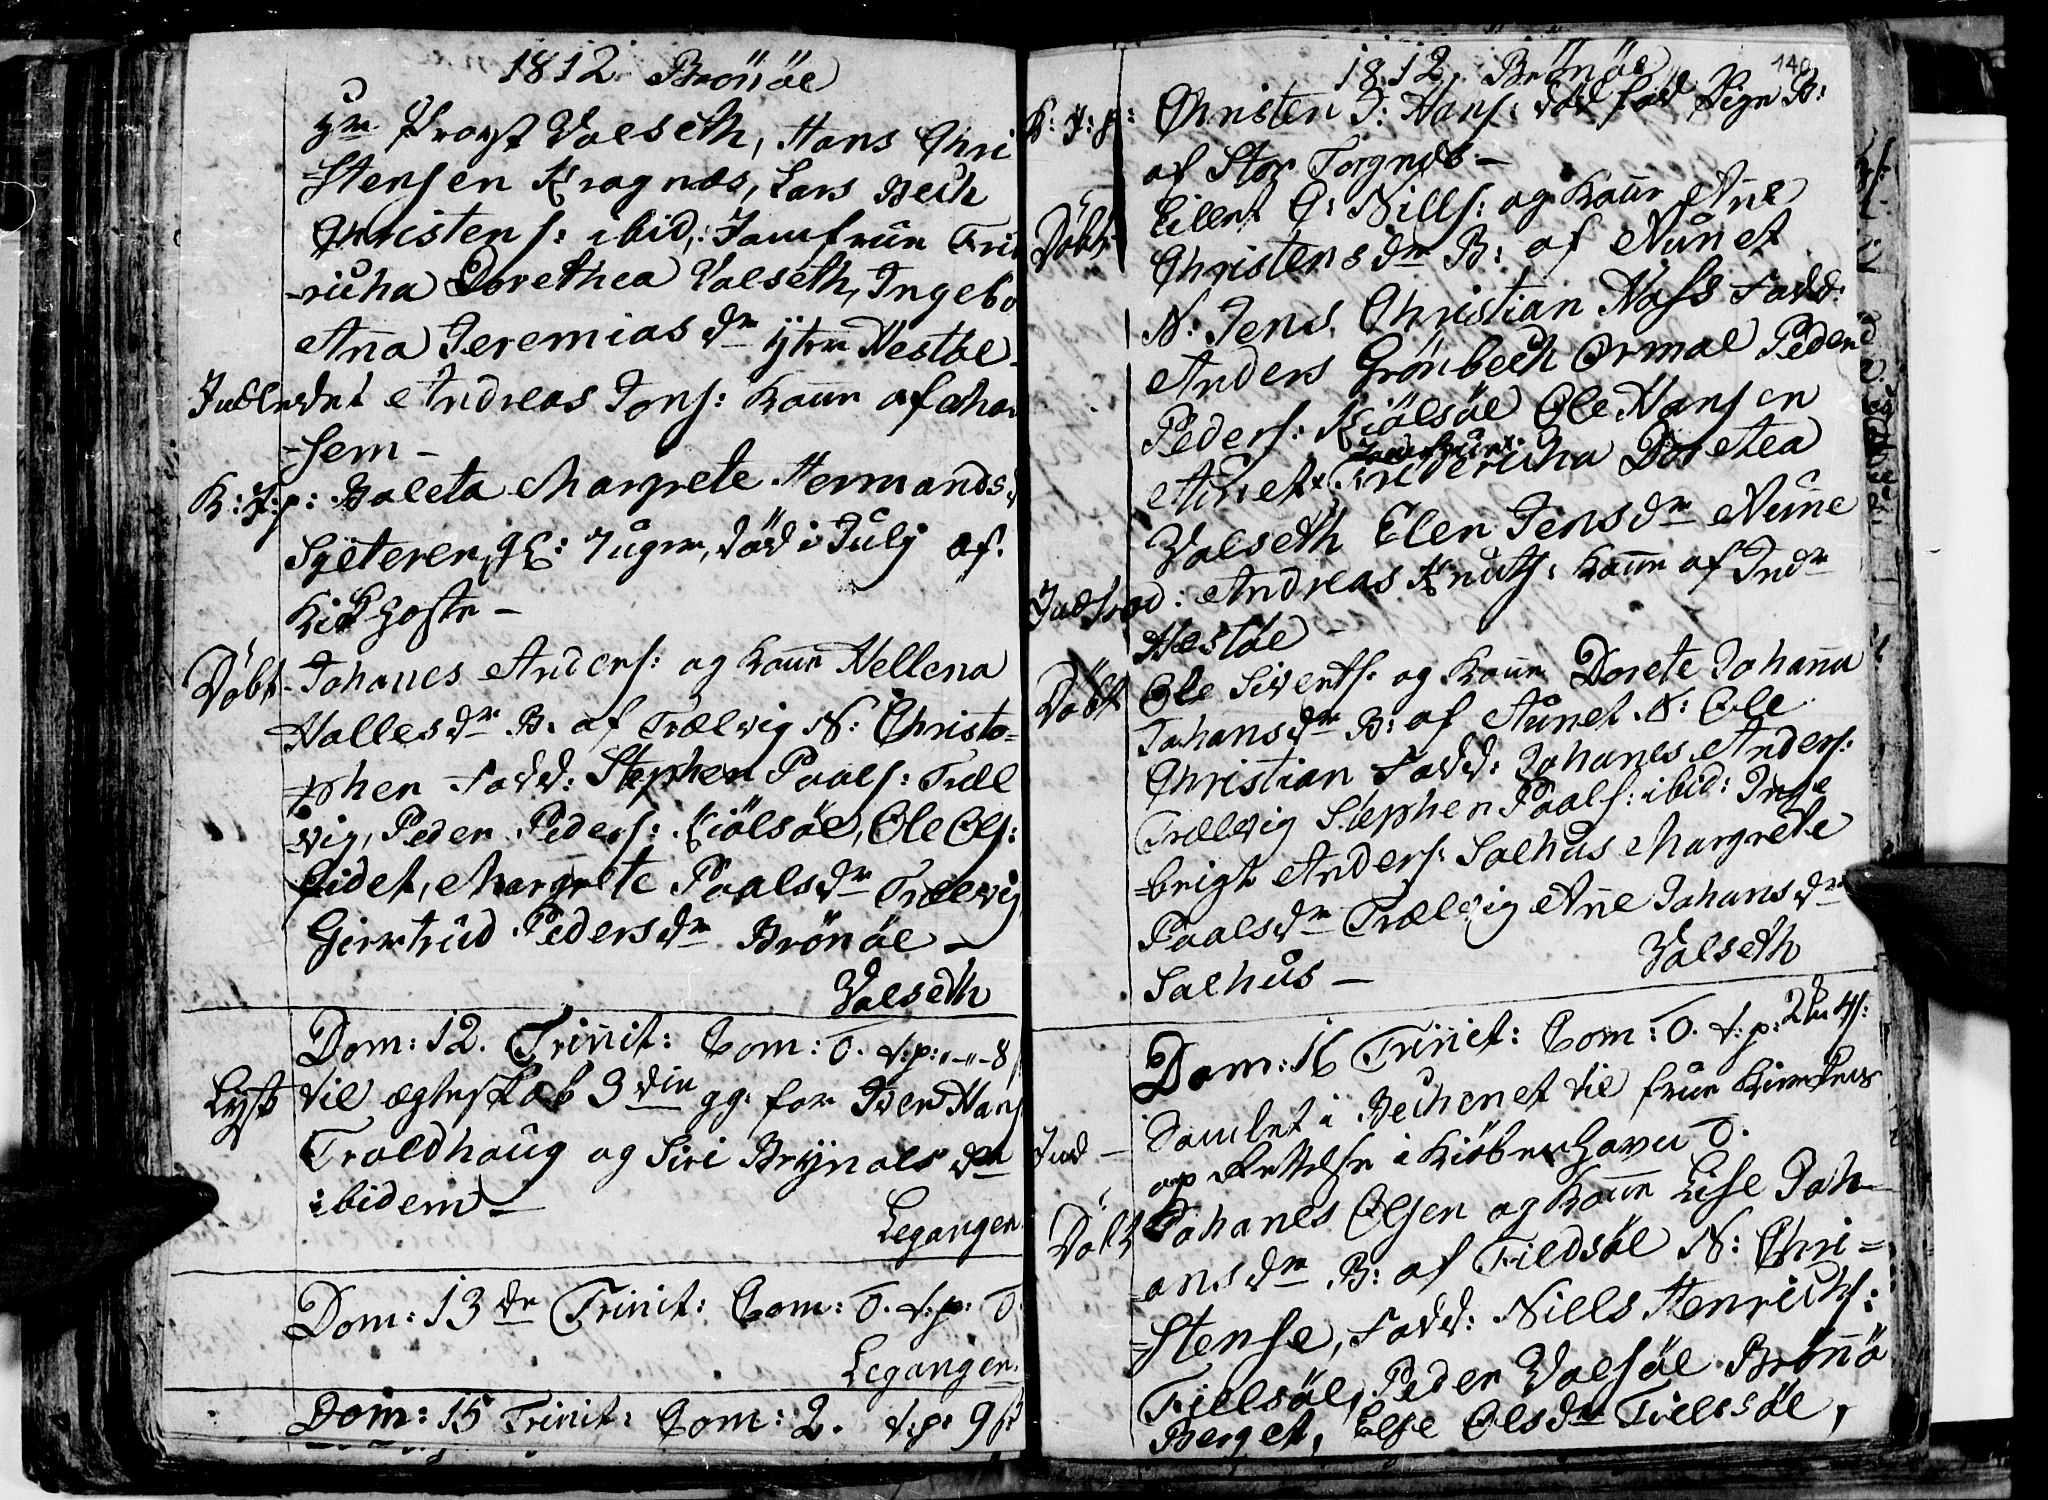 1812 Brönöe
Hr Provst Valseth, Hans Chri
-stensen Kragnæs, Lars Bech
Christens: ibid: Jomfrue Frid
-richa Dorethea Valseth, Ingebo
Ana Jeremiasdr Ytre Hestöe
Indledet Andreas Jons: Kone af
-sem -
K: J: p: Baleta Margrete Hermands
Syeteren, gl: 7 uger, död i July af
Kikhoste -
Döbt Johanes Anders: og Kone Hellena
Hallesdr B: af Trælvig N: Christo=
pher Fadd: Stephen Paals: Træl
vig, Peder Peders: Kiölsöe, Ole Ols:
Eidet, Margrete Paalsdr Trælvig
Giertrud Pedersdr Brönöe -
Valseth
Dom: 12. Trinit: Com: 0. t: p: 8
Lyst til ægteskab 3die gg: for Iver Hans
Troldhaug og Siri Brynolsdr
ibidem -
Legangen
Dom: 13de Trinit: Com: 0. t: p: 0
Legangen.
Dom: 15 Trinit: Com: 2. t: p: 9
1812. Brönöe
140
K: J: p: Christen J: Hans: död föd Pige B:
af Stor Torgnes -
Döbt Eilert C: Nills: og Kone Ane
Christensdr B: af Aunet
N: Jens Christian Hass Fadd:
Anders Grönbech Ormöe Peder
Peders: Kiölsöe Ole Hansen
Aunet Jomfrue Fridericha Doretea
Valseth Elen Jensdr Aune
Indled: Andreas Knuts: Kone af Indr
Hestöe -
Döbt Ole Siverts: og Kone Dorete Johana
Johansdr B: af Aunet N: Ole
Christian Fadd: Johanes Anders:
Trælvig Stephen Paals: ibid: Inge
=brigt Anders: Salhus Margrete
Paalsdr Trælvig Ane Johansdr
Salhus -
Valseth
Dom: 16 Trinit: Com: 0. t: p: 2
Samlet i Bechenet til
opdrettelse i Kiöbenhavn 0.
Ind -
Döbt Johanes Olsen og Kone Lise Joh
-ansdr B: af Fieldsöe N: Chri=
=stense, Fadd: Niells Henrichs:
Fiellsöe, Peder Valsöe Brönö
Berget, Else Olsdr Fiellsöe,